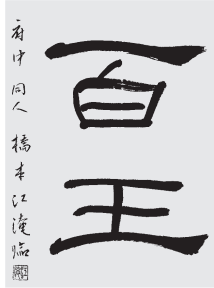 百王
府中 同人 橋本江滝臨